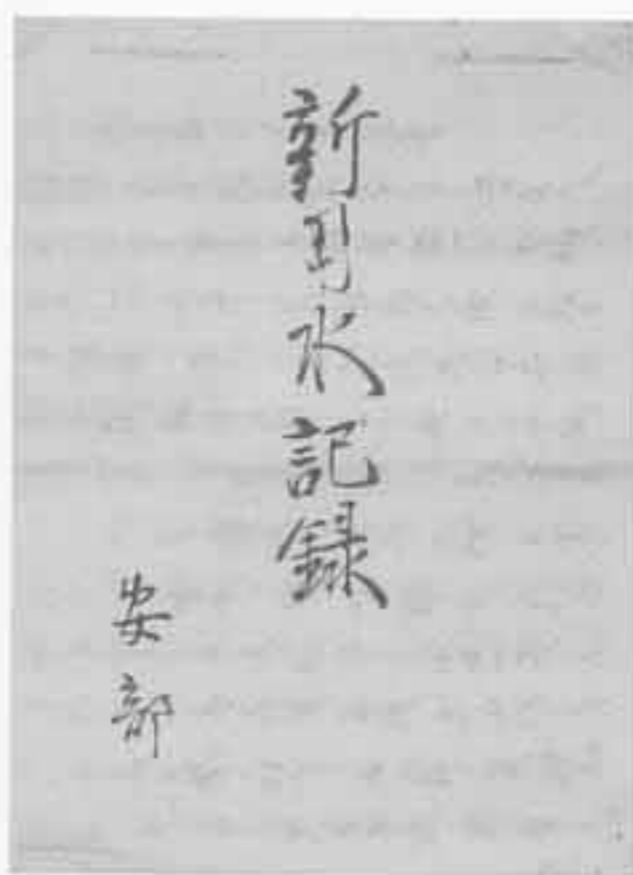 新用水記録
安部